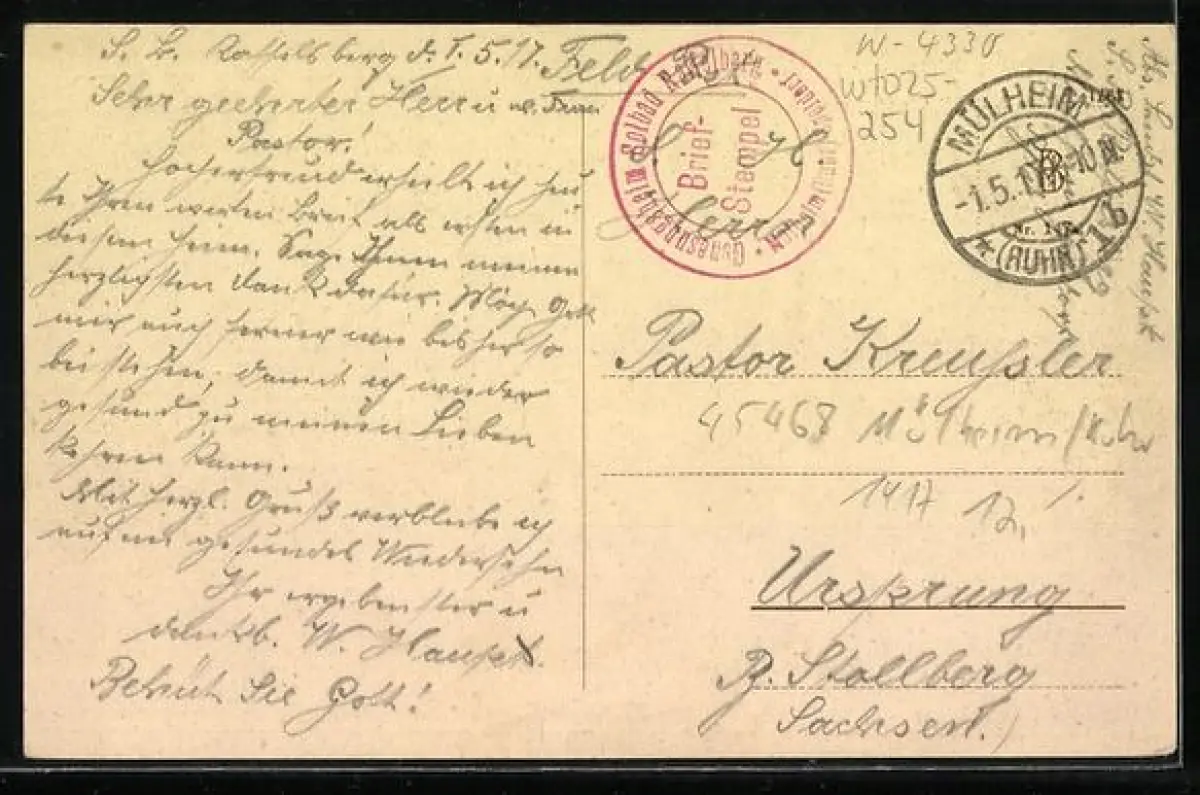 S. B. Raffelberg d. 1.5.17.
Sehr geehrter Herr u. w. Frau
Pastor!
Hocherfreud erhielt ich heu
te Ihren werten Brief als ersten in
diesem Heim. Sage Ihnen meinen
herzligsten Dank dafür. Mög Gott
mir auch ferner wie bisher so
beistehen, damit ich wieder
gesund zu meinen Lieben
kehren kann.
Mit herzl. Gruß verbleibe ich
auf ein gesundes Wiedersehn
Ihr ergebenster u
dankb. W. Haupt.
Behüt Sie Gott!
Feldpost
Genesungsheim Solbad Raffelberg
Mülheim
Brief-
Stempel
W-4330
W1025-
254
MÜLHEIM
-1.5.17
(RUHR) 1 b
S. H.
Herrn
Pastor Kreußler
45468 Mülheim/Ruhr
1417 12,
Ursprung
B. Stollberg
Sachsen.
Abs.
W Haupt